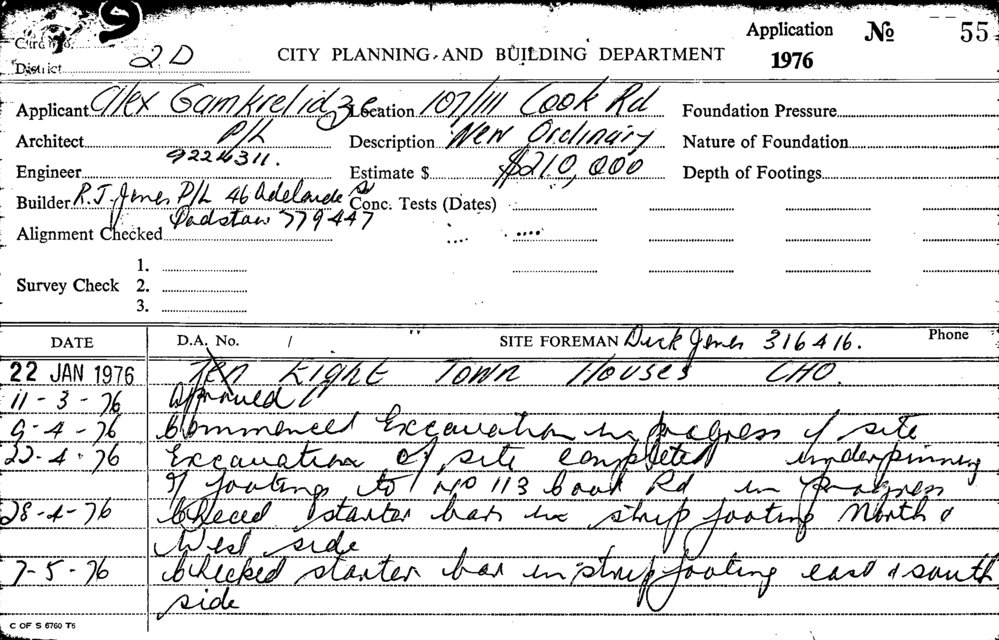 9
Card No.
District 2D
CITY PLANNING AND BUILDING DEPARTMENT
Application No 55
1976
Applicant Alex Gamkrelidze Location 107/111 Cook Rd Foundation Pressure
Architect P/L Description New Ordinary Nature of Foundation
9224311.
Engineer Estimate $ $210,000 Depth of Footings
Builder R.J. Jones P/L 46 Adelaide S Conc. Tests (Dates)
Padstow 779447
Alignment Checked
1.
Survey Check 2.
3.
DATE D.A. No. / SITE FOREMAN Dick Jones 316416. Phone
22 JAN 1976 Ten Eight Town Houses CHO.
11-3-76 Approved
9-4-76 Commenced Excavation in progress of site
22-4-76 Excavation of site completed underpinning
of footings to No 113 Cook Rd in progress
28-4-76 Checked starter bars in strip footing North &
West side
7-5-76 Checked starter bar in strip footing east & south
side
C OF S 6760 T6